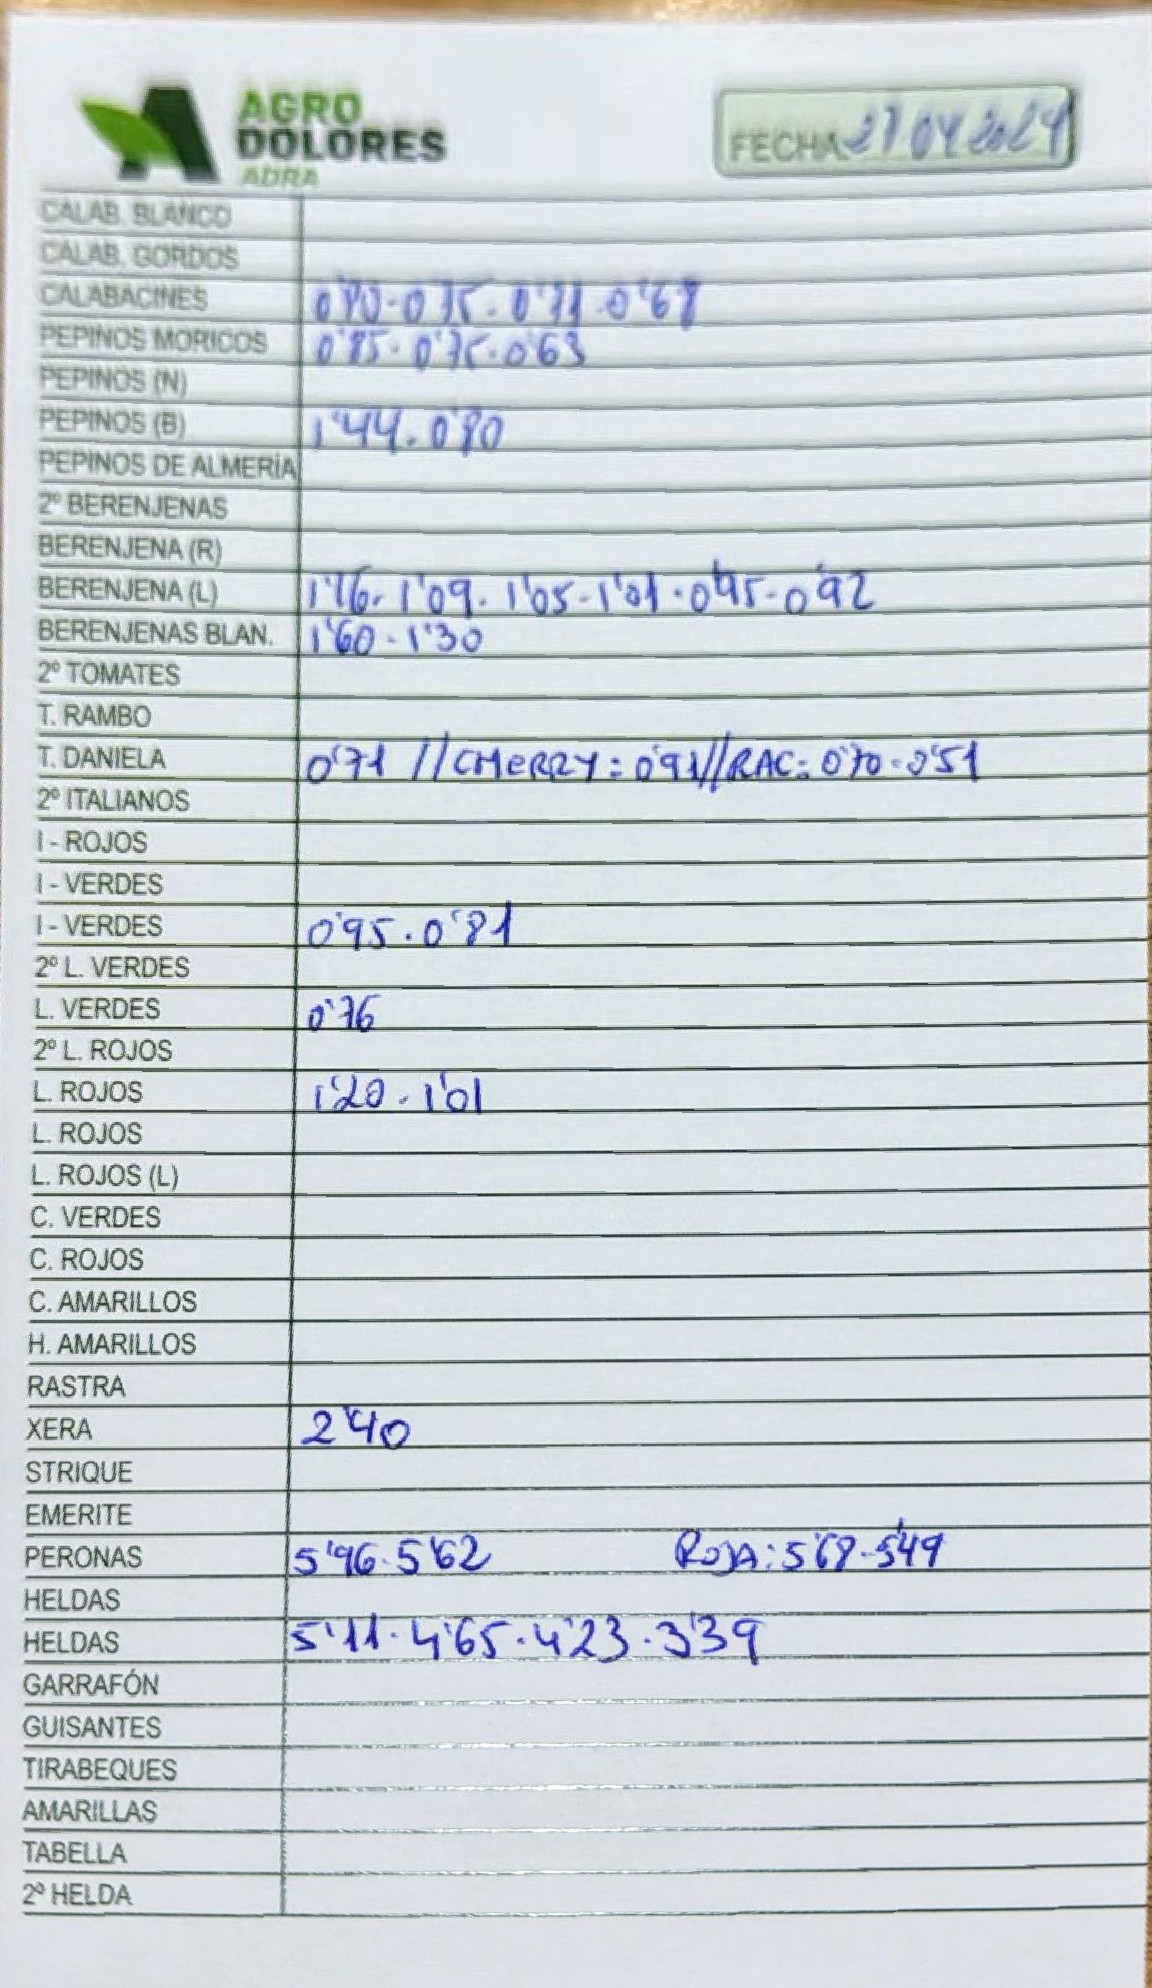 AGRO
DOLORES
ADRA
FECHA 27 04 2024
CALAB. BLANCO
CALAB. GORDOS
CALABACINES 0'80-0'75-0'71-0'68
PEPINOS MORICOS 0'85-0'75-0'63
PEPINOS (N)
PEPINOS (B) 1'44-0'80
PEPINOS DE ALMERÍA
2º BERENJENAS
BERENJENA (R)
BERENJENA (L) 1'16-1'09-1'05-1'01-0'95-0'92
BERENJENAS BLAN. 1'60-1'30
2º TOMATES
T. RAMBO
T. DANIELA 0'71 // CHERRY: 0'91 // RAC: 0'70-0'51
2º ITALIANOS
I - ROJOS
I - VERDES
I - VERDES 0'95-0'81
2º L. VERDES
L. VERDES 0'76
2º L. ROJOS
L. ROJOS 1'20-1'01
L. ROJOS
L. ROJOS (L)
C. VERDES
C. ROJOS
C. AMARILLOS
H. AMARILLOS
RASTRA
XERA 2'40
STRIQUE
EMERITE
PERONAS 5'96-5'62 ROJA: 5'68-5'49
HELDAS
HELDAS 5'11-4'65-4'23-3'39
GARRAFÓN
GUISANTES
TIRABEQUES
AMARILLAS
TABELLA
2º HELDA